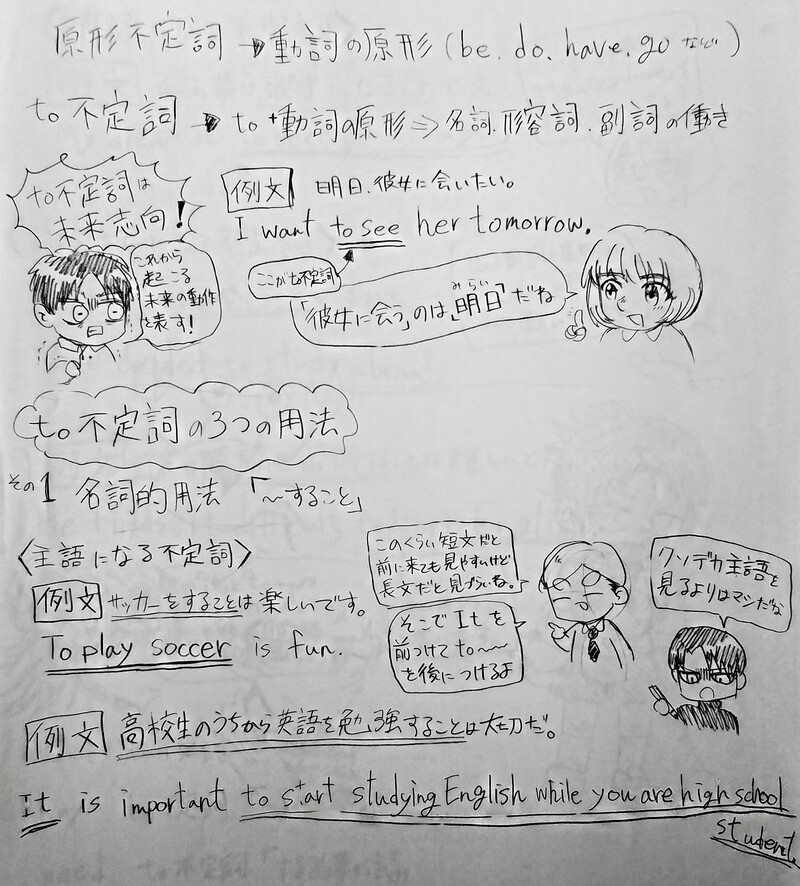 原形不定詞→動詞の原形(be.do.have.goなど)
to不定詞→to+動詞の原形⇒名詞.形容詞.副詞の働き
to不定詞は
未来志向!
これから
起こる
未来の動作
を表す!
例文 明日、彼女に会いたい。
I want to see her tomorrow.
ここがto不定詞
みらい
「彼女に会う」のは「明日」だね
to不定詞の3つの用法
その1 名詞的用法 「〜すること」
〈主語になる不定詞〉
例文 サッカーをすることは楽しいです。
To play soccer is fun.
このくらい短文だと
前に来ても見やすいけど
長文だと見づらいね。
そこでItを
前つけてto〜〜
を後につけるよ
クソデカ主語を
見るよりはマシだな
例文 高校生のうちから英語を勉強することは大切だ。
It is important to start studying English while you are high school
student.